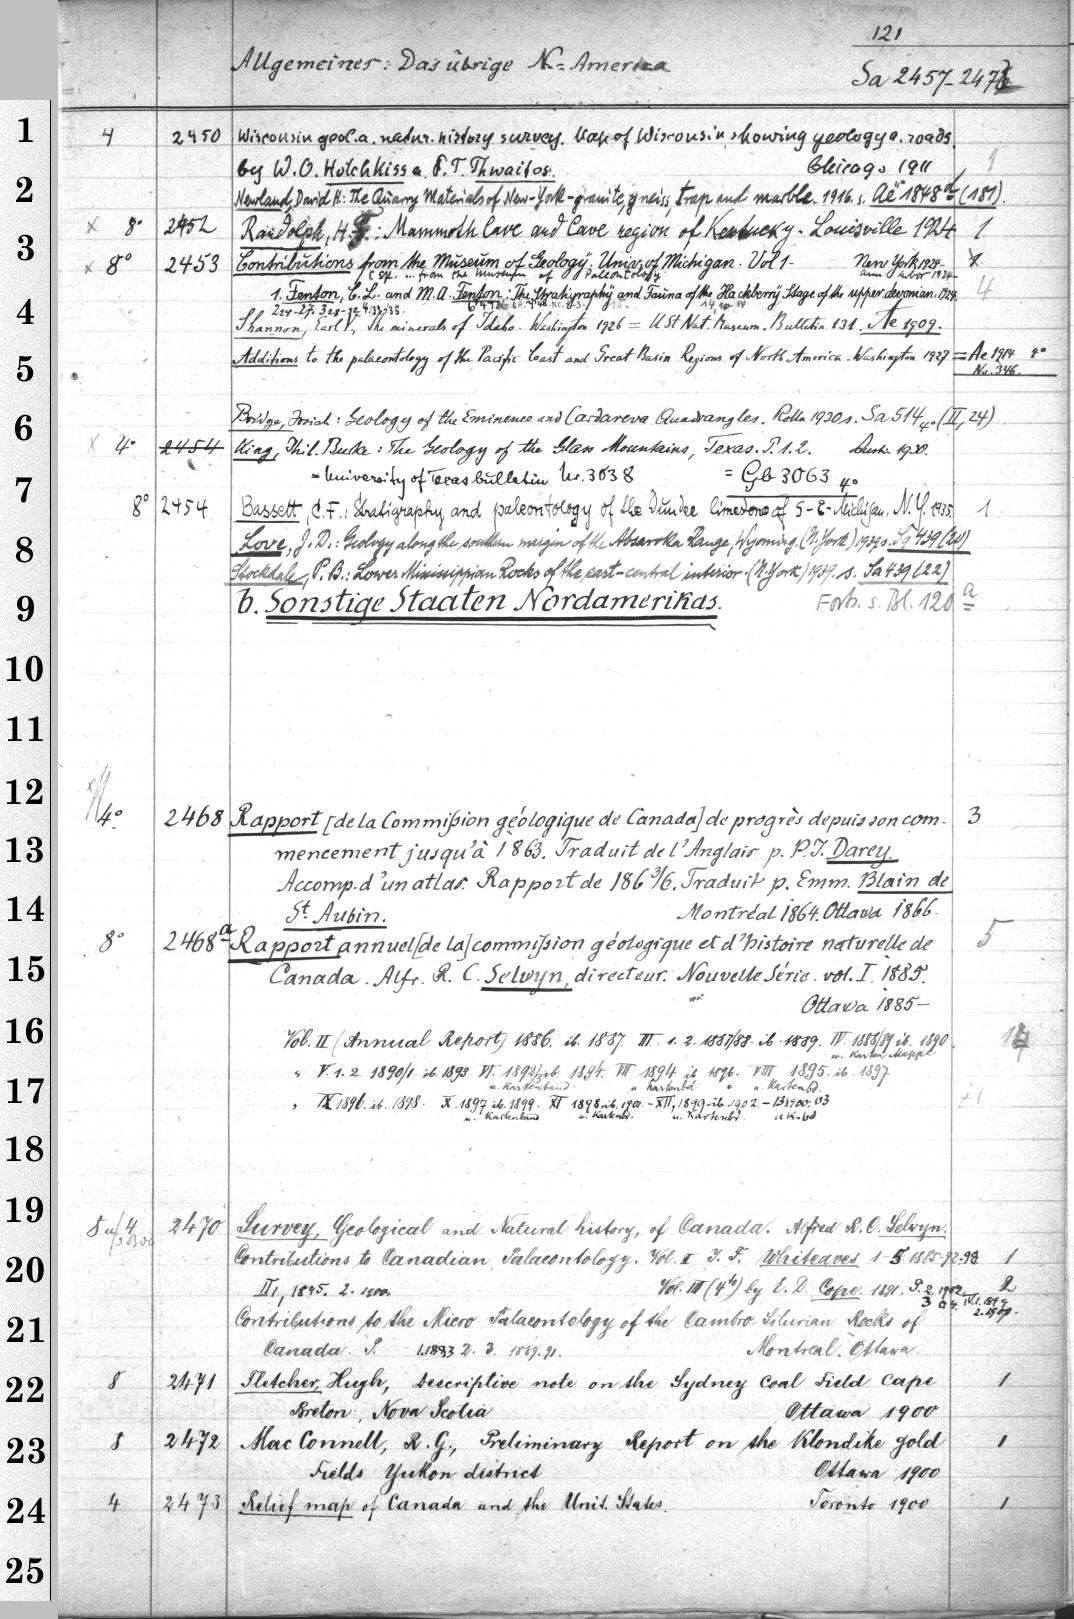 121
Allgemeines: Das übrige N=America
Sa 2457-247
1 4 2450 Wisconsin geol. a. natur. history survey. Map of Wisconsin showing geology a. roads
by W. O. Hotchkiss a. F. T. Thwaites. Chicago 1911 1
2 Newland, David H: The Quarry Materials of New-York-granite, gneiss, trap and marble. 1916. s. Ae 1848 (181).
x 8° 2452 Randolph, H. F.: Mammoth Cave and Cave region of Kentucky. Louisville 1924 1
3 x 8° 2453 Contributions from the Museum of Geology. Univ. of Michigan. Vol 1- New York 1924-
from the Museum of Paleontology ann arbor 1924-
1. Fenton, C. L. and M. A. Fenton: The Stratigraphy and Fauna of the Hackberry Stage of the upper devonian. 1924. 4
4 Shannon, Earl V., The minerals of Idaho. Washington 1926 = U St Nat. Museum. Bulletin 131. Ae 1909.
5 Additions to the palaeontology of the Pacific Coast and Great Basin Regions of North America. Washington 1927 = Ae 1914 4°
No. 346.
6 Bridge, Josiah: Geology of the Eminence and Cardareva Quadrangles. Rolla 1930 s. Sa 514 4° (II, 24)
x 4° 2454 King, Phil. Burke: The Geology of the Glass Mountains, Texas. P. 1. 2. Austin 1930.
7 = University of Texas bulletin Nr. 3038 = Gb 3063 4°
8° 2454 Bassett, C. F.: Stratigraphy and paleontology of the Dundee limestone of S-E-Michigan. N.Y. 1935 1
8 Love, J. D.: Geology along the southern margin of the Absaroka Range, Wyoming. (N. York) 1939 s. Sa 439 (20)
Stockdale, P. B.: Lower Mississippian Rocks of the east-central interior. (N. York) 1939. s. Sa 439 (22)
9 b. Sonstige Staaten Nordamerikas. Forts. s. Bl. 120 a
10
11
12 4° 2468 Rapport [de la Commission géologique de Canada] de progrès depuis son com- 3
13 mencement jusqu'à 1863. Traduit de l'Anglais p. P. J. Darey.
Accomp. d'un atlas. Rapport de 1863/6. Traduit p. Emm. Blain de
14 St. Aubin. Montréal 1864. Ottawa 1866.
8° 2468a Rapport annuel [de la] commission géologique et d'histoire naturelle de 5
15 Canada. Alfr. R. C. Selwyn, directeur. Nouvelle Série. vol. I. 1885.
Ottawa 1885-
16 Vol. II (Annual Report) 1886. ib. 1887. III. 1. 2. 1887/88 ib. 1889. IV. 1888/89 ib. 1890.
u. Karten Mappe
" V. 1. 2. 1890/1. ib. 1893 VI. 1892/93 ib. 1894. VII 1894 ib 1896. VIII 1895. ib. 1897
17 u. Kartenband. u. Kartenbd " u. Kartenbd.
" IX 1896. ib. 1898. X. 1897 ib. 1899. XI 1898 ib. 1901. - XII, 1899 ib. 1902 - 13 1900. 03 +1
u. Kartenband u. Kartenbd. u. Kartenbd
18
19 8 u/4 2470 Survey, Geological and Natural history, of Canada. Alfred R. C. Selwyn.
20 Contributions to Canadian Palaeontology. Vol. I J. F. Whiteaves 1-5. 1885-92.98 1
II, 1895. 2. 1900. Vol. III (4to) by E. D. Cope. 1891. P. 2. 1902 2
21 Contributions to the Micro Palaeontology of the Cambro Silurian Rocks of
Canada. P. 1. 1883 2. 3. 1889. 91. Montreal. Ottawa.
22 8 2471 Fletcher, Hugh, Descriptive note on the Sydney Coal Field Cape 1
Breton, Nova Scotia Ottawa 1900
23 8 2472 Mac Connell, R. G., Preliminary Report on the Klondike gold 1
Fields Yukon district Ottawa 1900
24 4 2473 Relief map of Canada and the Unit. States. Toronto 1900 1
25